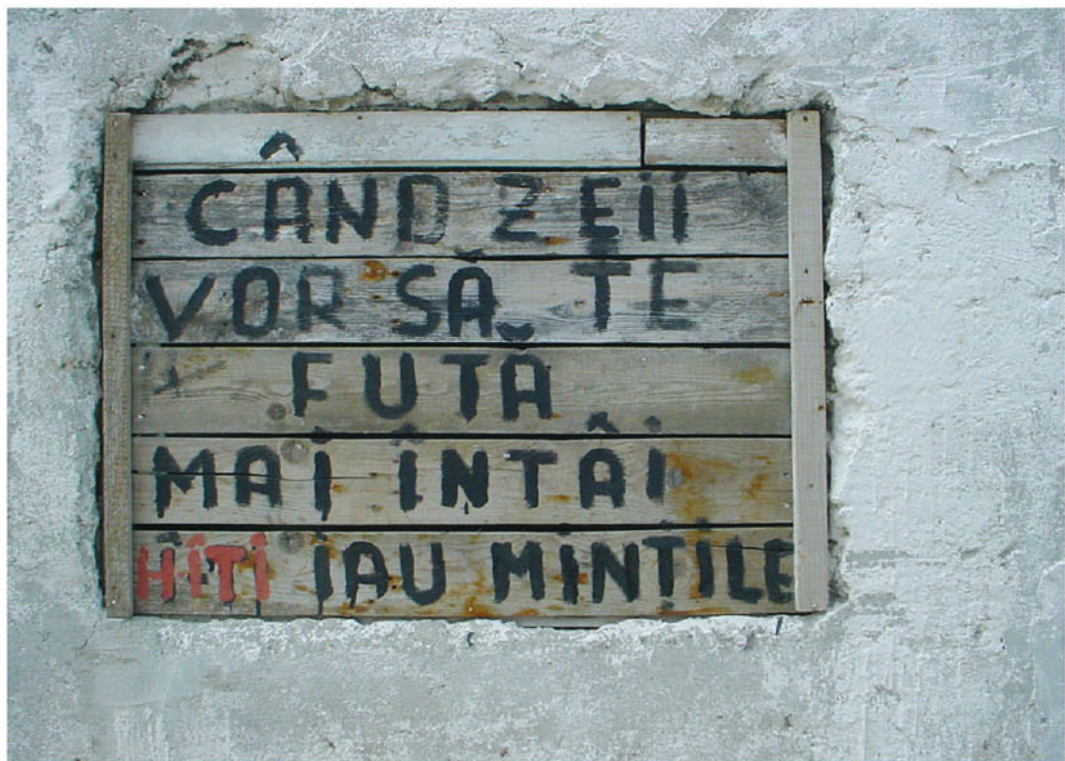 CÂND ZEII
VOR SĂ TE
FUTĂ
MAI ÎNTÂI
HITI IAU MINTILE